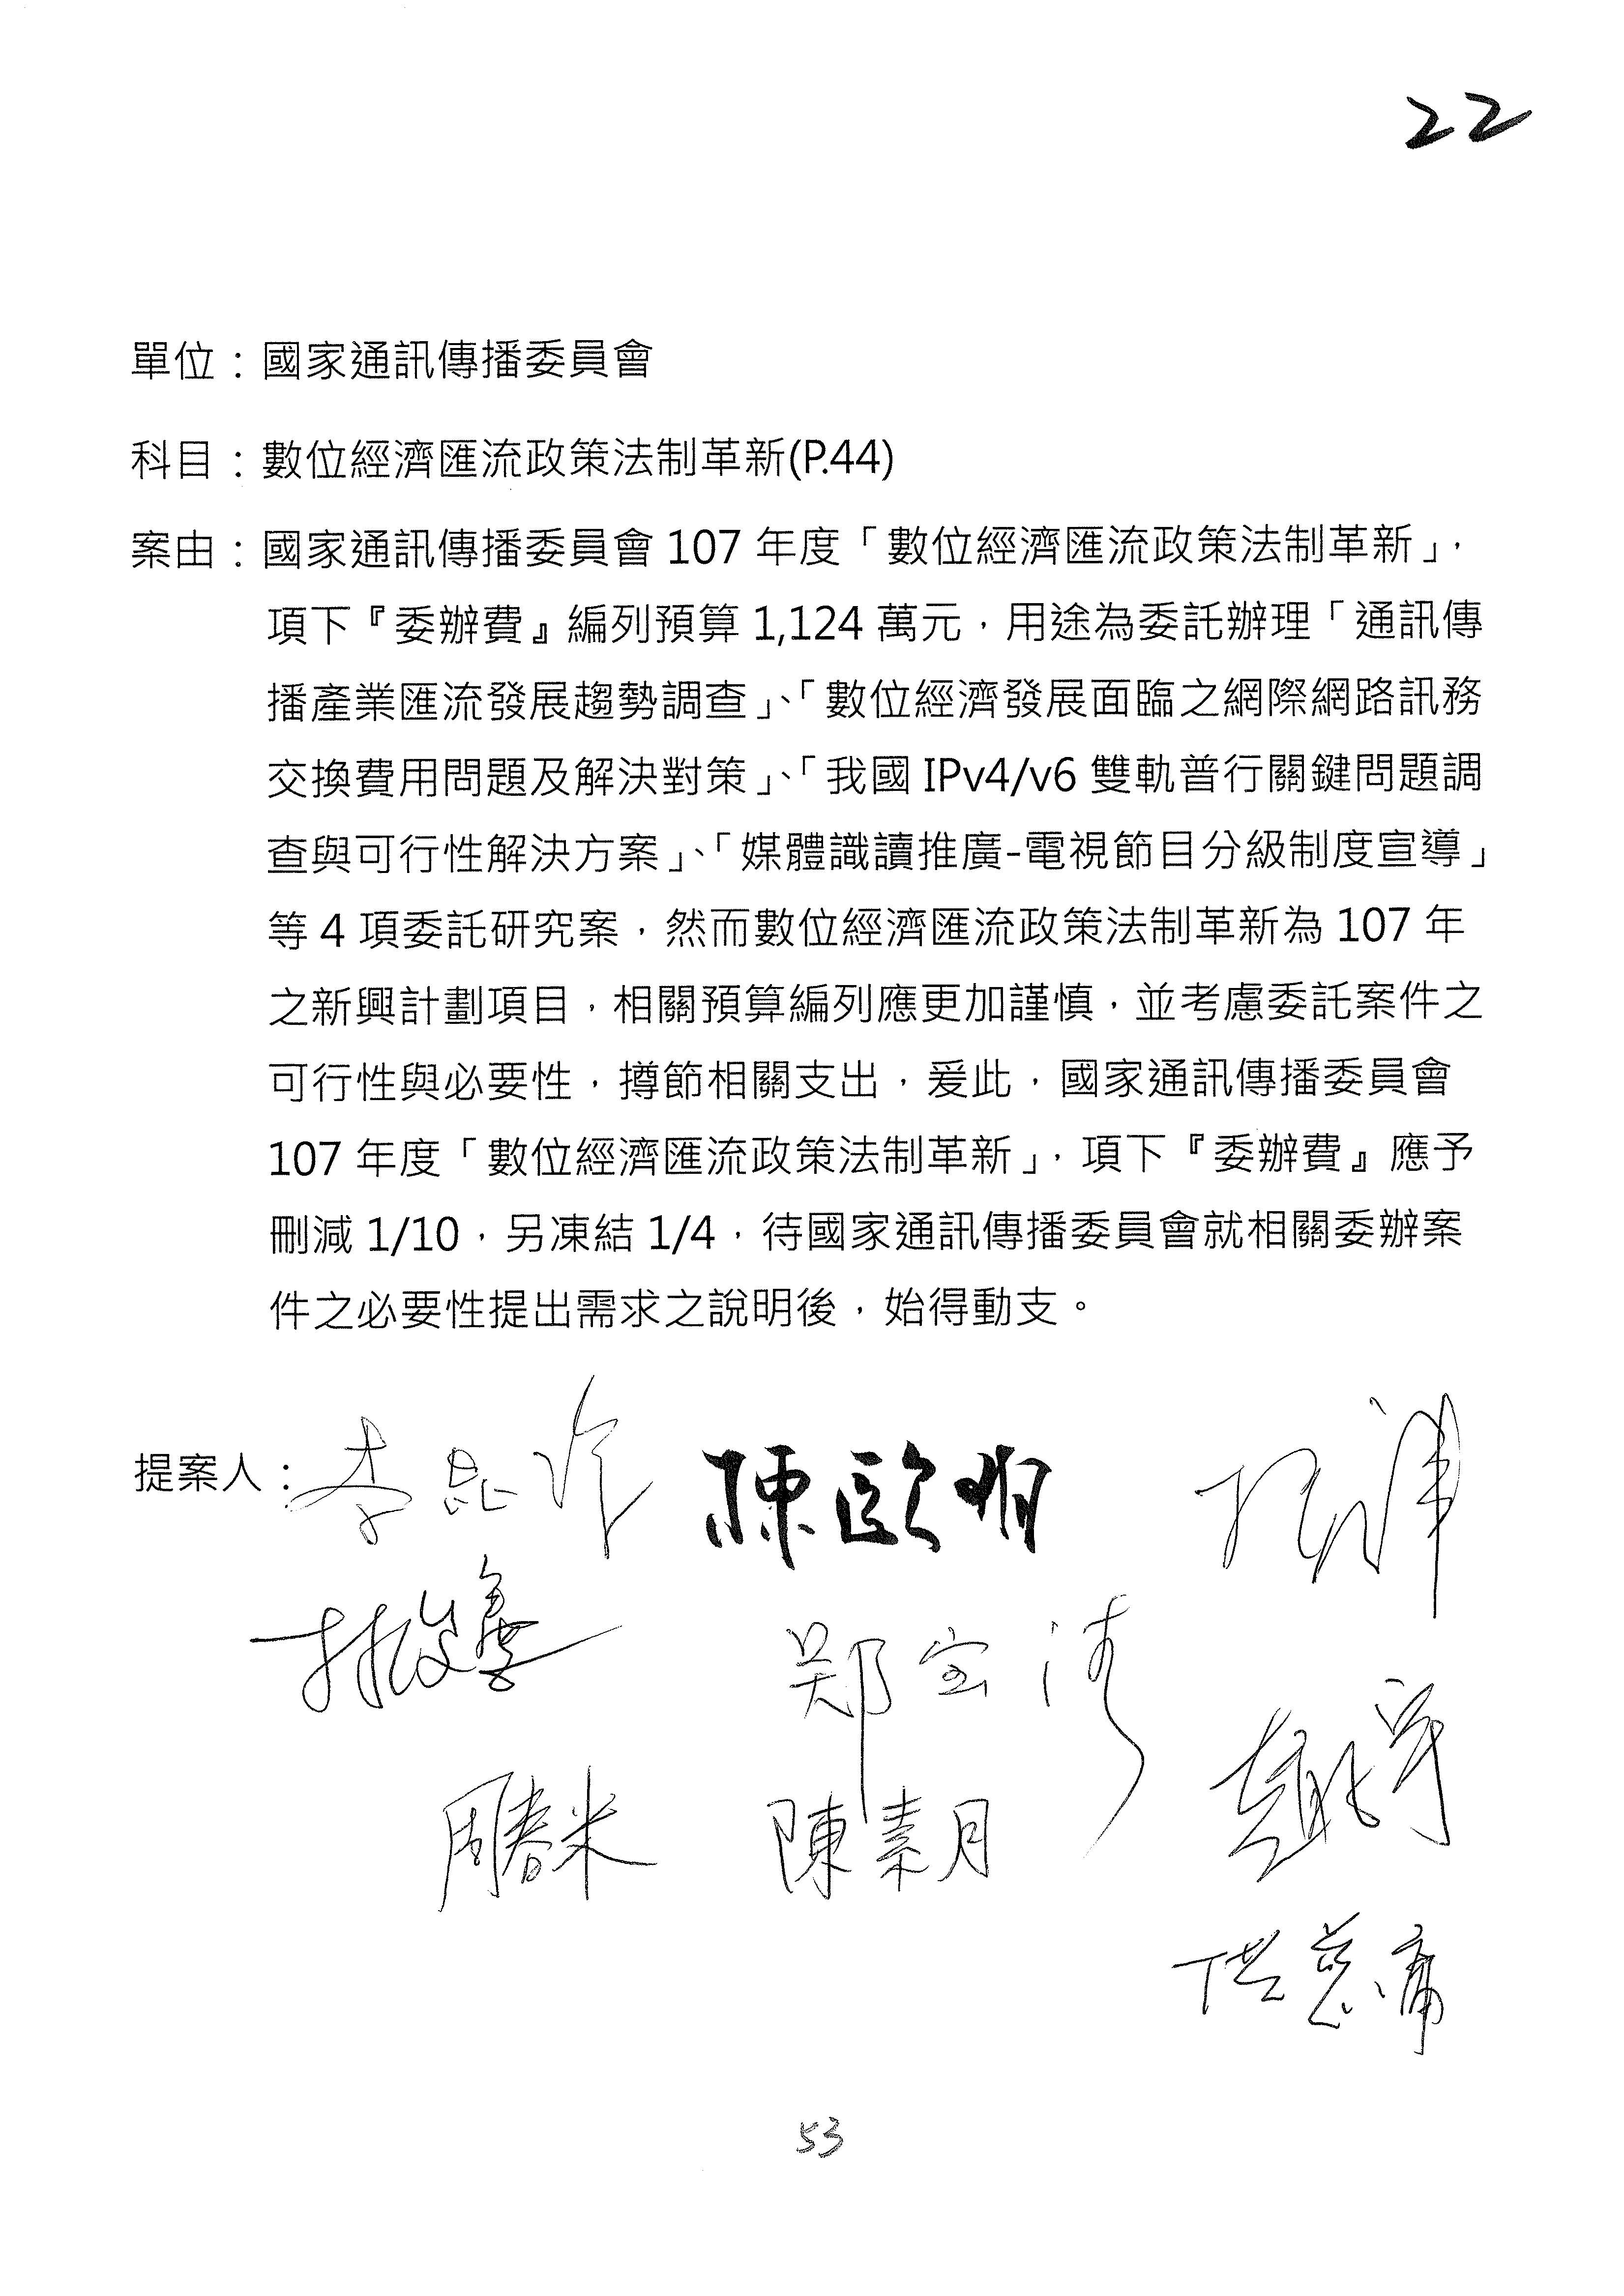 22
單位：國家通訊傳播委員會
科目：數位經濟匯流政策法制革新(P.44)
案由：國家通訊傳播委員會 107 年度「數位經濟匯流政策法制革新」，
項下『委辦費』編列預算 1,124 萬元，用途為委託辦理「通訊傳
播產業匯流發展趨勢調查」、「數位經濟發展面臨之網際網路訊務
交換費用問題及解決對策」、「我國 IPv4/v6 雙軌普行關鍵問題調
查與可行性解決方案」、「媒體識讀推廣-電視節目分級制度宣導」
等 4 項委託研究案，然而數位經濟匯流政策法制革新為 107 年
之新興計劃項目，相關預算編列應更加謹慎，並考慮委託案件之
可行性與必要性，撙節相關支出，爰此，國家通訊傳播委員會
107 年度「數位經濟匯流政策法制革新」，項下『委辦費』應予
刪減 1/10，另凍結 1/4，待國家通訊傳播委員會就相關委辦案
件之必要性提出需求之說明後，始得動支。
提案人：李昆澤 陳歐珀
林俊憲 鄭宝清
趙正宇
周春米 陳素月
洪慈庸
53